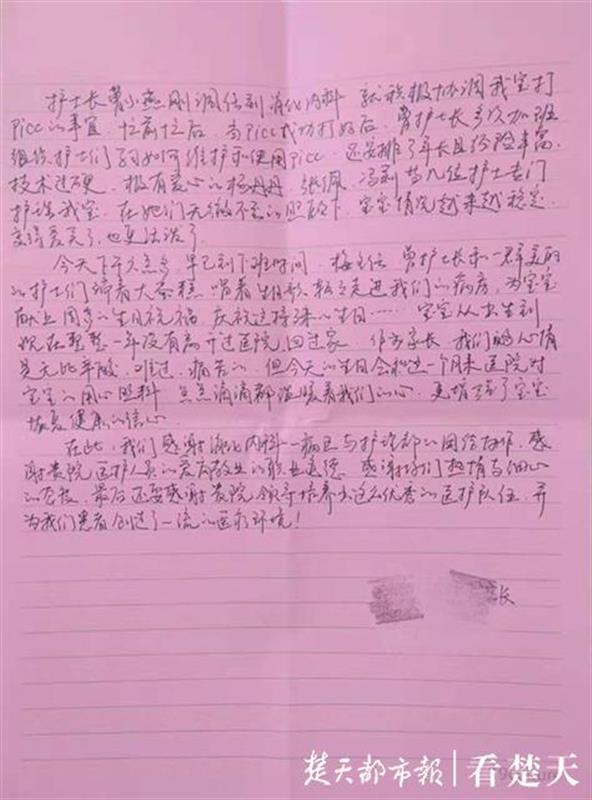 护士长曾小燕刚调任到消化内科 就积极协调我宝打
Picc的事宜. 忙前忙后. 当Picc成功打好后. 曾护士长多次加班
组织护士们学习如何维护和使用Picc. 还安排了年长且经验丰富.
技术过硬. 极有爱心的杨丹丹 张佩. 冯莉等几位护士专门
护理我宝. 在她们无微不至的照顾下. 宝宝情况越来越稳定.
变得爱笑了. 也更活泼了.
今天下午六点多. 早已到下班时间. 梅主任 曾护士长和一群美丽
的护士们端着大蛋糕 唱着生日歌 走进我们的病房, 为宝宝
献上同乡的生日祝福, 庆祝这特殊的生日…… 宝宝从出生到
现在整整一年没有离开过医院 回过家. 作为家长 我们的心情
是无比辛酸. 难过. 痛苦的. 但今天的生日会和这一个月来医院对
宝宝的用心照料 点点滴滴都温暖着我们的心, 更增强了宝宝
恢复健康的信心.
在此, 我们感谢消化内科一病区与护理部的团结协作. 感
谢贵院医护人员的爱岗敬业的职业道德. 感谢她们热情与细心
的态度. 最后还要感谢贵院领导培养出这么优秀的医护队伍. 并
为我们患者创造了一流的医疗环境!
长
楚天都市报 看楚天